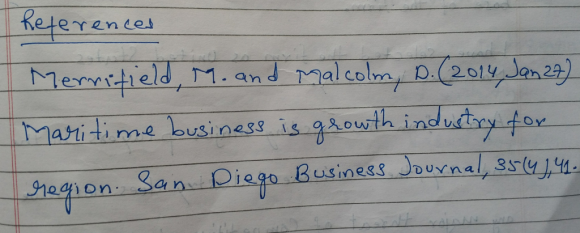 References
Merrifield, M. and Malcolm, D. (2014, Jan 27)
Maritime business is growth industry for
region. San Diego Business Journal, 35(4), 41.